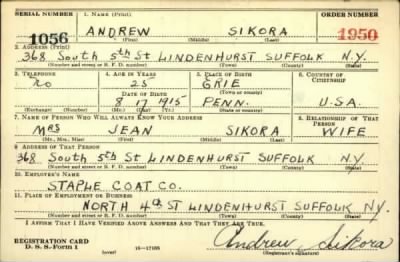 SERIAL NUMBER 1. NAME (Print) ORDER NUMBER
1056 ANDREW SIKORA 1950
(First) (Middle) (Last)
2. ADDRESS (Print)
368 South 5th St LINDENHURST SUFFOLK N.Y.
(Number and street or R. F. D. number) (Town) (County) (State)
3. TELEPHONE 4. AGE IN YEARS 5. PLACE OF BIRTH 6. COUNTRY OF CITIZENSHIP
No 25 GRIE
(Town or county)
DATE OF BIRTH
8 17 1915 PENN. U.S.A.
(Exchange) (Number) (Mo.) (Day) (Yr.) (State or country)
7. NAME OF PERSON WHO WILL ALWAYS KNOW YOUR ADDRESS 8. RELATIONSHIP OF THAT PERSON
MRS JEAN SIKORA WIFE
(Mr., Mrs., Miss) (First) (Middle) (Last)
9. ADDRESS OF THAT PERSON
368 South 5th St LINDENHURST SUFFOLK N.Y.
(Number and street or R. F. D. number) (Town) (County) (State)
10. EMPLOYER'S NAME
STAPLE COAT CO.
11. PLACE OF EMPLOYMENT OR BUSINESS
NORTH 4th ST LINDENHURST SUFFOLK NY.
(Number and street or R. F. D. number) (Town) (County) (State)
I AFFIRM THAT I HAVE VERIFIED ABOVE ANSWERS AND THAT THEY ARE TRUE.
REGISTRATION CARD
D. S. S. Form 1 16—17105 Andrew Sikora
(Registrant's signature)